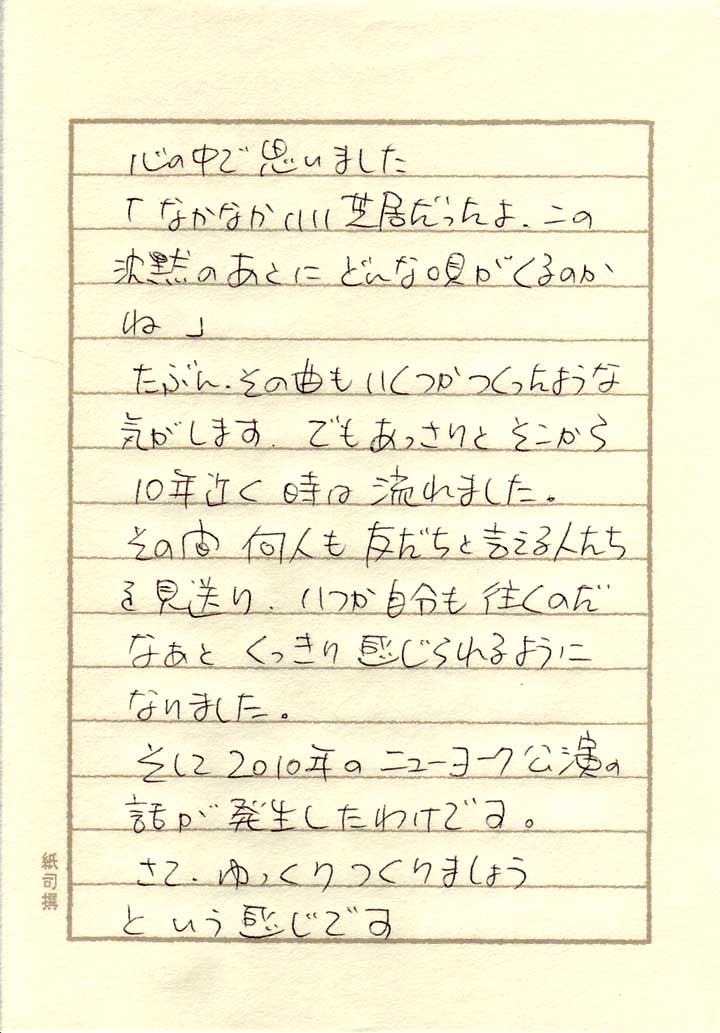 心の中で思いました
「なかなかいい芝居だったよ、この
沈黙のあとにどんな唄がくるのか
ね」
たぶん、その曲もいくつかつくったような
気がします、でもあっさりとそこから
10年近く時は流れました。
その間 何人も友だちと言える人たち
を見送り、いつか自分も往くのだ
なぁと くっきり感じられるように
なりました。
そして2010年のニューヨーク公演の
話が発生したわけです。
さて、ゆっくりつくりましょう
という感じです
紙司撰